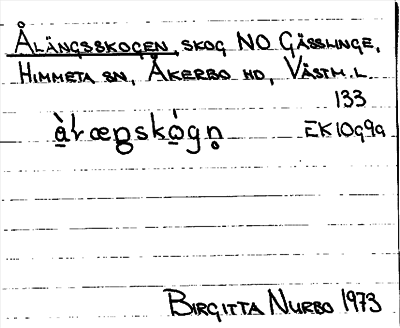 ÅLÄNGSSKOGEN, SKOG NO GÄSSLINGE,
HIMMETA SN, ÅKERBO HD, VÄSTM. L.
133
EK10g9a
BIRGITTA NURBO 1973